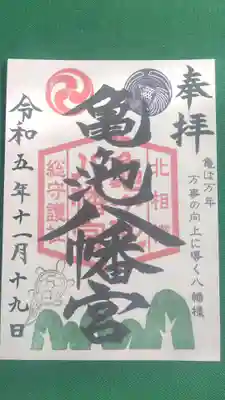 奉拝
亀は万年
万事の向上に導く八幡様
亀池八幡宮
北相
総守護社
令和五年十一月十九日